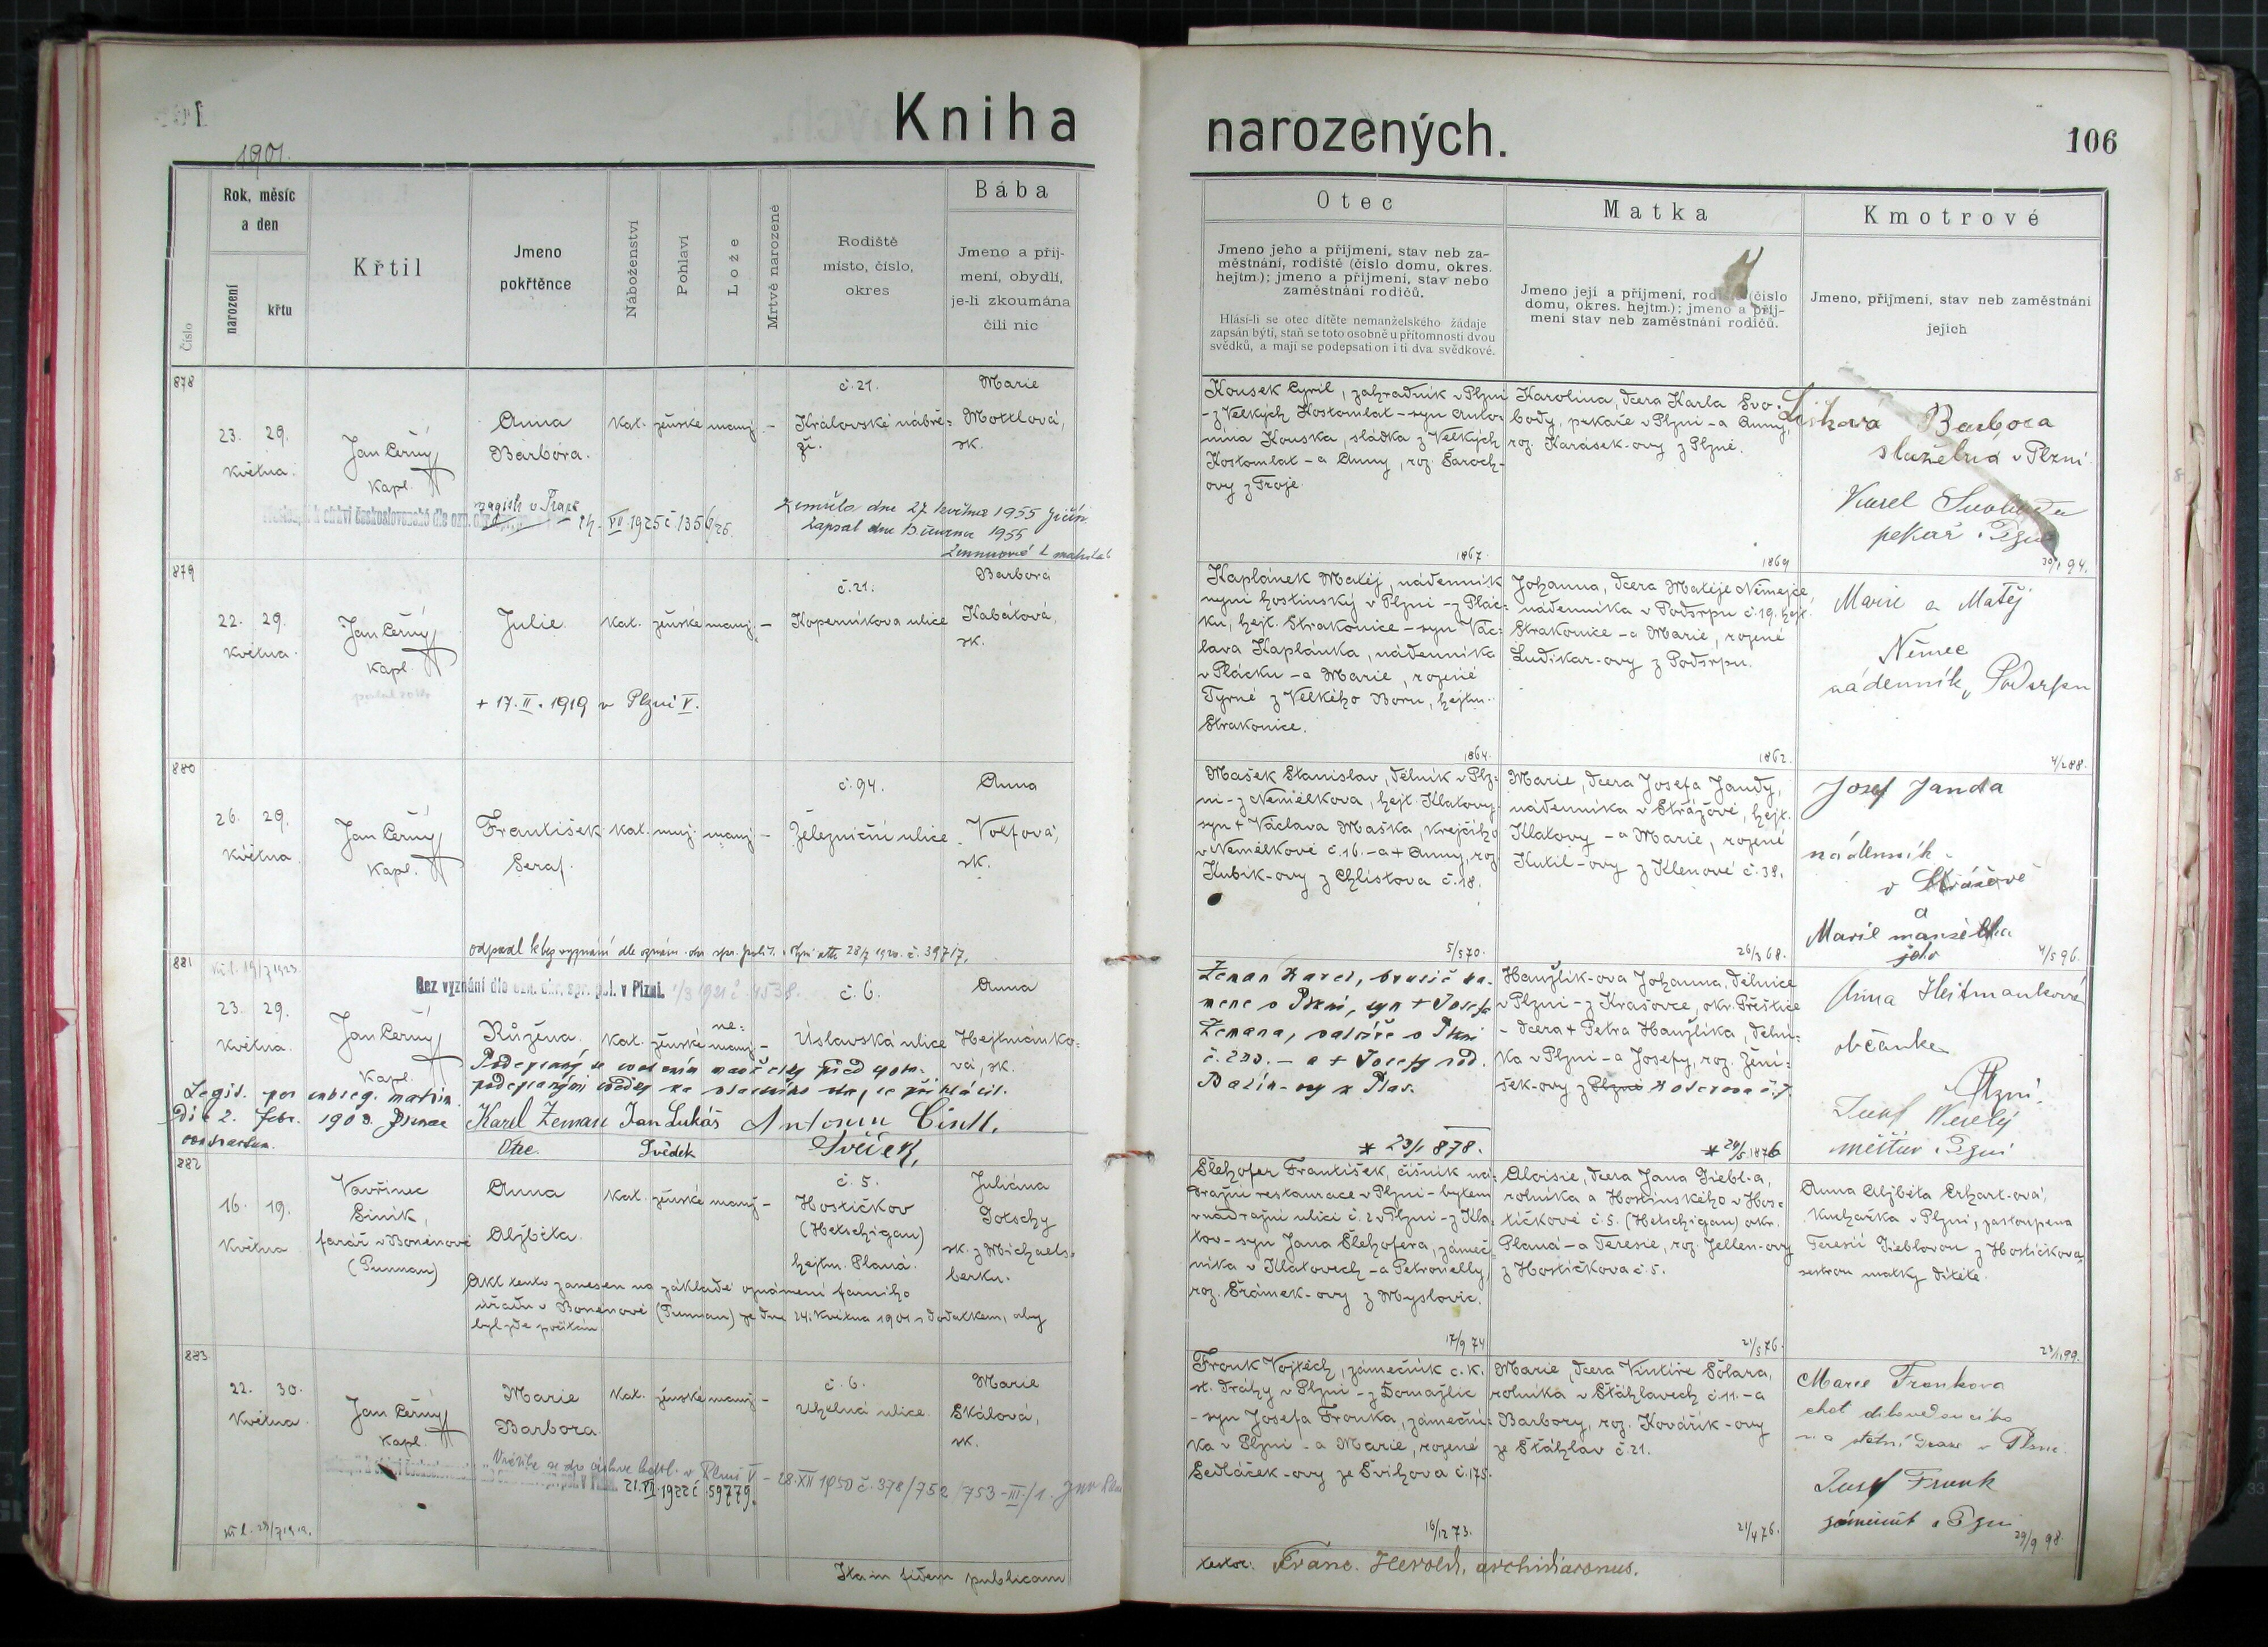 Kniha
narozených.
106
1901.
Číslo
Rok, měsíc
a den
narození
křtu
Křtil
Jmeno
pokřtěnce
Náboženství
Pohlaví
Lože
Mrtvě narozené
Rodiště
místo, číslo,
okres
Bába
Jmeno a příj-
mení, obydlí,
je-li zkoumána
čili nic
Otec
Jmeno jeho a příjmení, stav neb za-
městnání, rodiště (číslo domu, okres.
hejtm.); jmeno a příjmení, stav nebo
zaměstnání rodičů.
Hlásí-li se otec dítěte nemanželského žádaje
zapsán býti, staň se toto osobně u přítomnosti dvou
svědků, a mají se podepsati on i ti dva svědkové.
Matka
Jmeno její a příjmení, rodiště (číslo
domu, okres. hejtm.); jmeno a příj-
mení stav neb zaměstnání rodičů.
Kmotrové
Jmeno, příjmení, stav neb zaměstnání
jejich
878
23. 29.
května.
Jan Černý
kapl.
Anna
Barbora.
kat. ženské manž. -
č. 21.
Královské nábře-
ží.
Marie
Mottlová,
zk.
24. VII. 1925 č. 1356/25.
Zemřela dne 27. května 1955 Jičín.
Zapsal dne 13. června 1955
Kousek Cyril, zahradník v Plzni
- z Velkých Hostomlat - syn Anto-
nína Kouska, sládka z Velkých
Hostomlat - a Anny, roz. Šaroch-
ovy z Troje.
1867.
Karolina, dcera Karla Svo-
body, pekaře v Plzni - a Anny,
roz. Karásek-ovy z Plzně.
1869
Barbora
služebná v Plzni
Karel Svoboda
pekař v Plzni
30/1 94.
879
22. 29.
května.
Jan Černý
kapl.
Julie
kat. ženské manž. -
č. 21.
Koperníkova ulice
Barbora
Kabátová,
zk.
+ 17. II. 1919 v Plzni V.
Kaplánek Matěj, nádenník
nyní hostinský v Plzni - z Plác-
ku, hejt. Strakonice - syn Vác-
lava Kaplánka, nádenníka
v Plácku - a Marie, rozené
Tyrné z Velkého Boru, hejtm.
Strakonice.
1864.
Johanna, dcera Matěje Němejce,
nádenníka v Podsrpu č. 19. hejt.
Strakonice - a Marie, rozené
Ludikar-ovy z Podsrpu.
1862.
Marie a Matěj
Němec
nádenník, Podsrpu
4/2 88.
880
26. 29.
května
Jan Černý
kapl.
František
Seraf.
kat. muž. manž. -
č. 94.
Železniční ulice
Anna
Volfová,
zk.
Mašek Stanislav, dělník v Plz-
ni - z Nemělkova, hejt. Klatovy
syn + Václava Maška, krejčího
v Nemělkově č. 16. - a + Anny, roz.
Kubík-ovy z Chlistova č. 18.
5/5 70.
Marie, dcera Josefa Jandy,
nádenníka v Strážově, hejt.
Klatovy - a Marie, rozené
Kutil-ovy z Klenové č. 38.
26/3 68.
Josef Janda
nádenník
v Strážově
a
Marie manželka
jeho
4/5 96.
881
Bez vyznání dle ozn. okr. spr. pol. v Plzni.
23. 29.
května.
Jan Černý
kapl.
Růžena.
kat. ženské ne-
manž. -
č. 6.
Úslavská ulice
Anna
Hejtmánko-
vá, zk.
Legit. per subseq. matrim.
Die 2. Febr. 1903. Pilsnae
contractum.
Karel Zeman Jan Lukáš
Otec. Svědek
Antonín
Svědek,
Zeman Karel, brusič ka-
mene v Plzni, syn + Josefa
Zemana, v Plzni
* 23/1 878.
Hanzlík-ova Johanna, dělnice
v Plzni - z Krašovce, okr. Přeštice
- dcera + Petra Hanzlíka, dělní-
ka v Plzni - a Josefy, roz. Ženi-
šek-ovy z
* 24/5 1876
Anna Hejtmanková
občanka
v Plzni.
Josef Veselý
měšťan v Plzni
882
16. 19.
května
Vavřinec
Siník,
farář v Bonenově
(Punnau)
Anna
Alžběta.
kat. ženské manž. -
č. 5.
Hostíčkov
(Hetschigau)
hejtm. Planá.
Juliána
Götschy
zk. z Michaels-
berku.
Akt tento zanesen na základě oznámení farního
úřadu v Bonenově (Punnau) ze dne 24. května 1901 s dodatkem, aby
byl zde počítán
Šlehofer František, číšník ná-
dražní restaurace v Plzni - bytem
v nádražní ulici č. 2 v Plzni - z Kla-
tov - syn Jana Šlehofera, zámeč-
níka v Klatovech - a Petronelly,
roz. Šrámek-ovy z Myslovic.
17/9 74
Aloisie, dcera Jana Giebl-a,
rolníka a hostinského v Hos-
tíčkově č. 5. (Hetschigau) okr.
Planá - a Teresie, roz. Jellen-ovy
z Hostíčkova č. 5.
21/5 76.
Anna Alžběta Erhart-ová,
kuchařka v Plzni, zastoupena
Teresií Gieblovou z Hostíčkova,
sestrou matky dítěte.
23/1 99.
883
22. 30.
května.
Jan Černý
kapl.
Marie
Barbora.
kat. ženské manž. -
č. 6.
Uhelná ulice.
Marie
Skálová,
zk.
21. VI. 1922 č. 59779.
28. XII 1950 č. 378/752/753-III/1.
Fronk Vojtěch, zámečník c. k.
st. dráhy v Plzni - z Domažlic
- syn Josefa Fronka, zámeční-
ka v Plzni - a Marie, rozené
Sedláček-ovy ze Švihova č. 175.
16/12 73.
Marie, dcera Vintíře Šolara,
rolníka v Šťáhlavech č. 11. - a
Barbory, roz. Kovářík-ovy
ze Šťáhlav č. 21.
21/4 76.
Marie Fronkova
Josef Fronk
zámečník v Plzni
29/9 98.
Ita in fidem publicam
testor: Franc. Herold, archidiaconus.